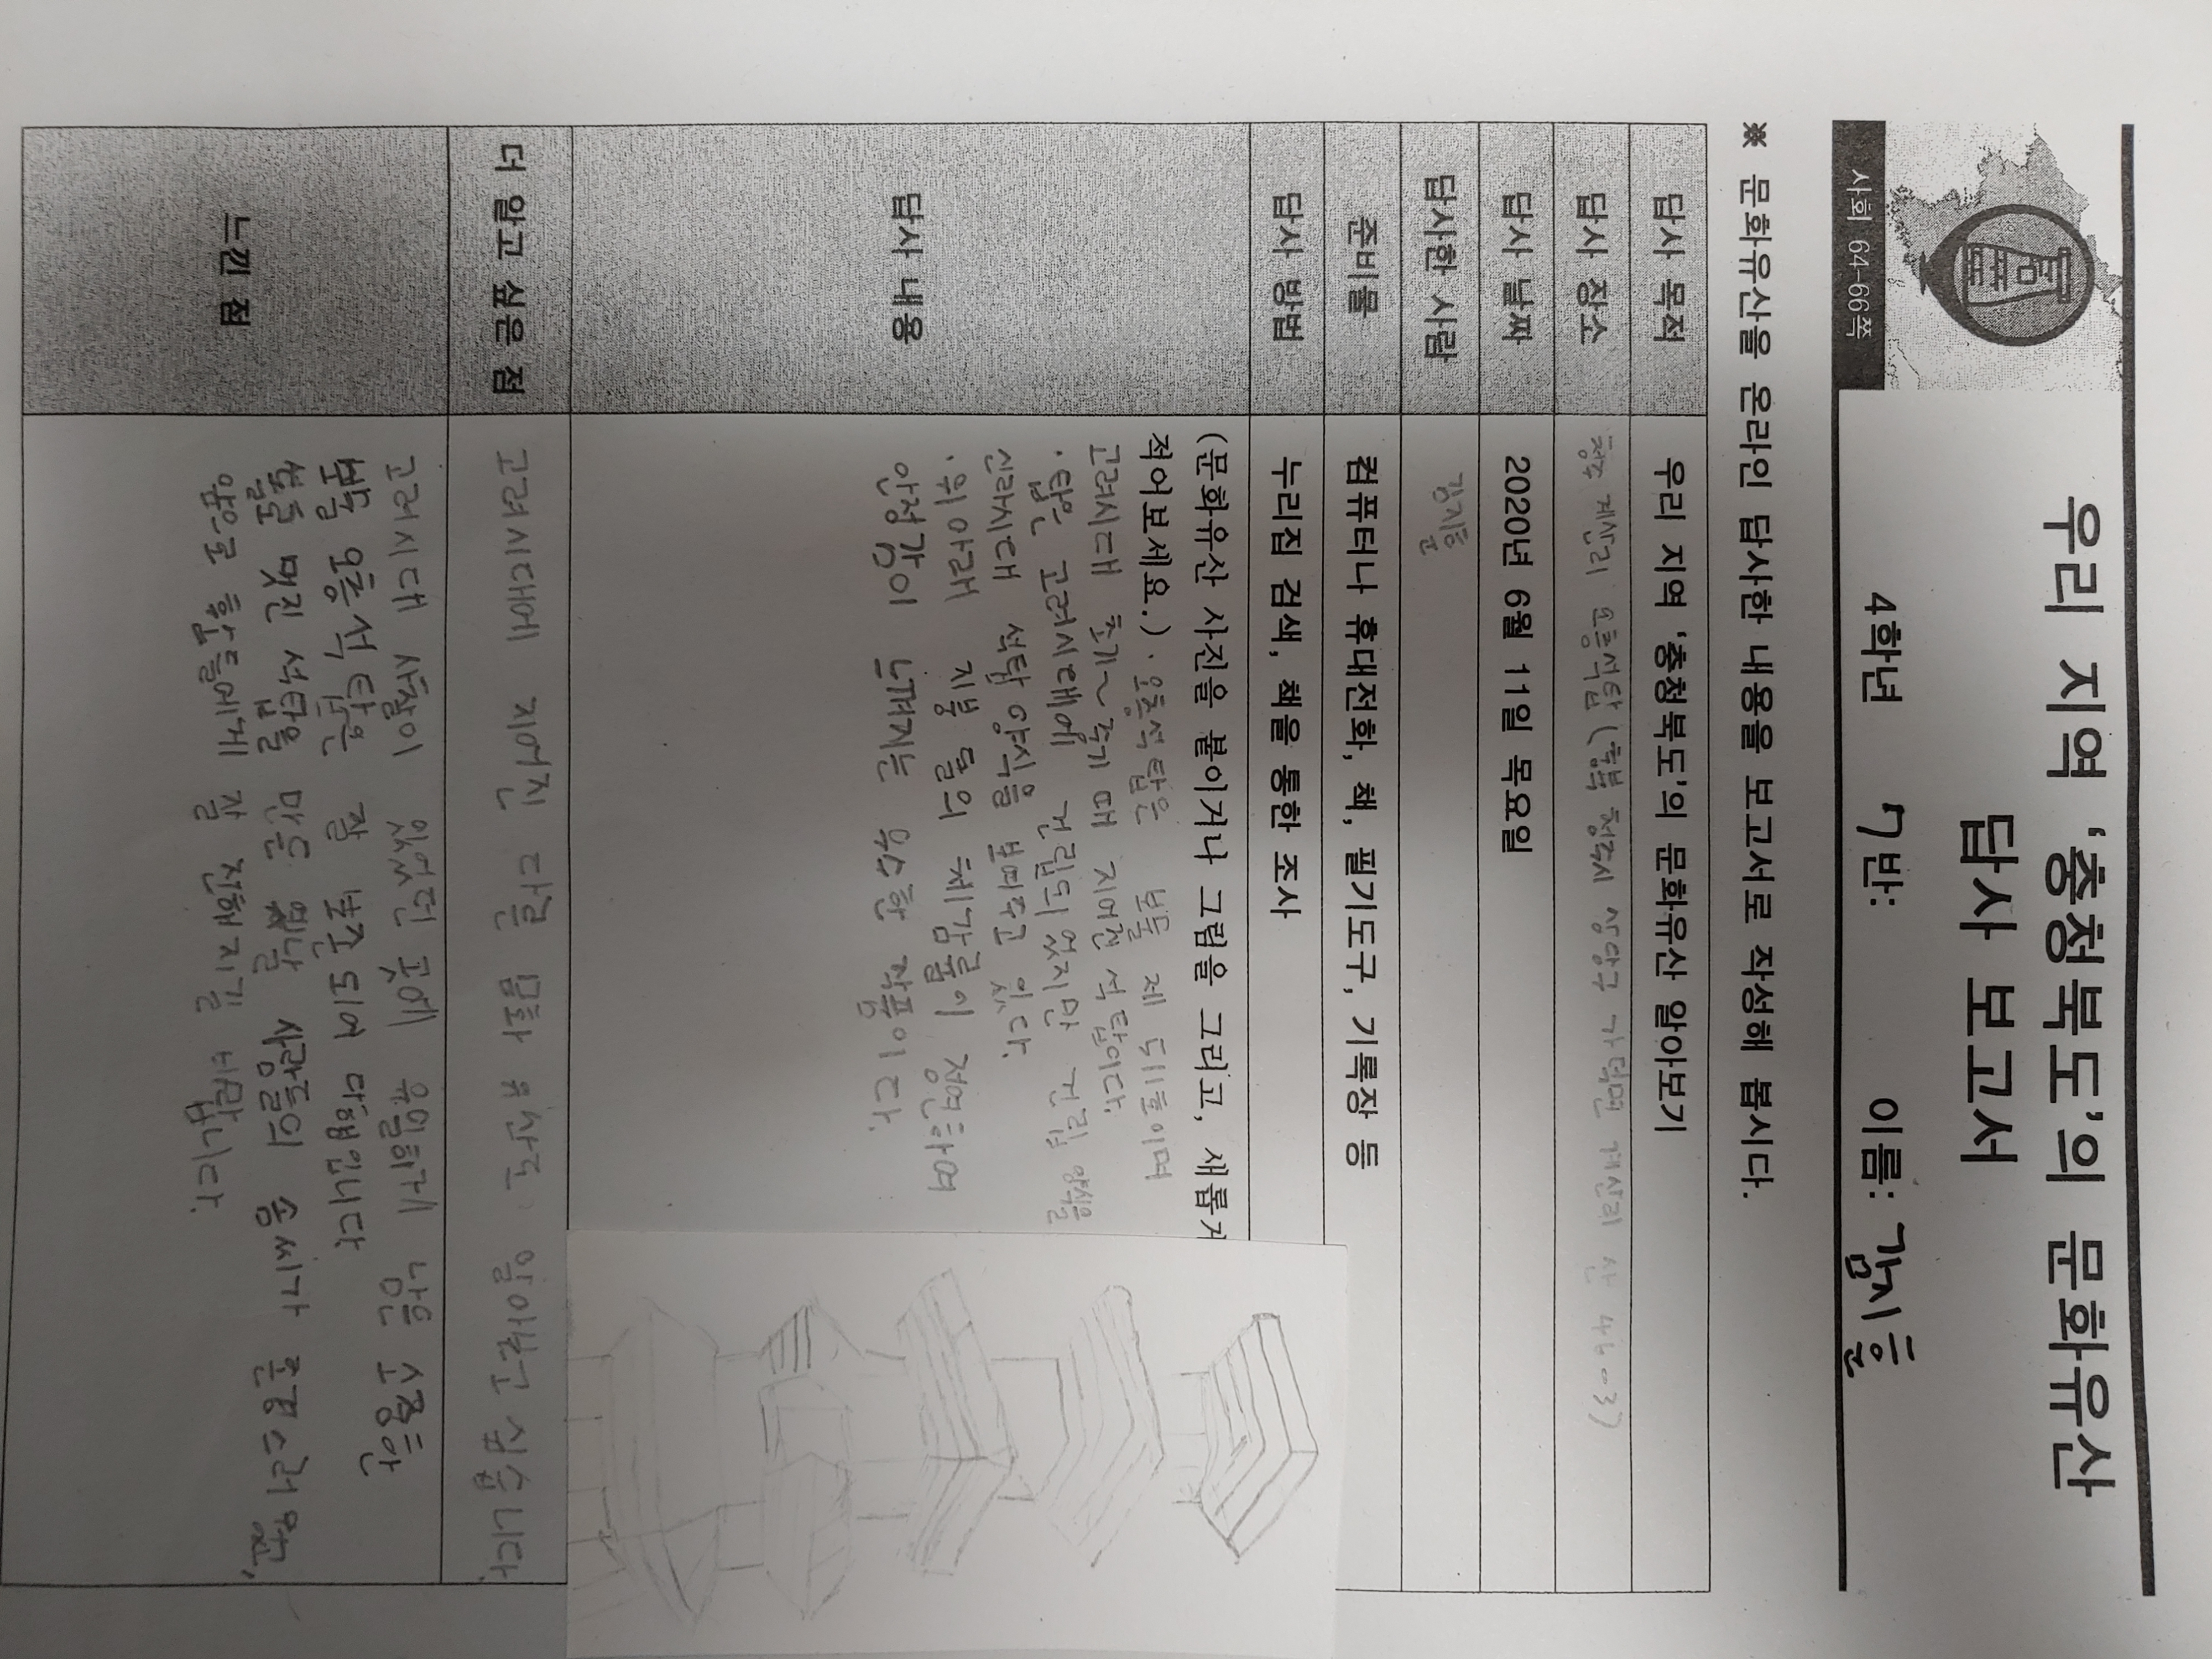 우리 지역 '충청북도'의 문화유산
답사 보고서
사회 64-66쪽
4학년 7반: 이름: 김지훈
※ 문화유산을 온라인 답사한 내용을 보고서로 작성해 봅시다.
답사 목적 우리 지역 '충청북도'의 문화유산 알아보기
답사 장소 청주 계산리 오층석탑 (충북 청주시 상당구 가덕면 계산리 산 46-3)
답사 날짜 2020년 6월 11일 목요일
답사한 사람 김지훈
준비물 컴퓨터나 휴대전화, 책, 필기도구, 기록장 등
답사 방법 누리집 검색, 책을 통한 조사
답사 내용
(문화유산 사진을 붙이거나 그림을 그리고, 새롭게
적어보세요.) · 오층석탑은 보물 제 511호이며
고려시대 초기~중기 때 지어진 석탑이다.
· 탑은 고려시대에 건립되었지만 건립 양식을
신라시대 석탑 양식을 보여주고 있다.
· 위아래 지붕 돌의 체감률이 정연하여
안정감이 느껴지는 우수한 작품이다.
더 알고 싶은 점 고려시대에 지어진 다른 문화 유산도 알아보고 싶습니다.
느낀 점
고려시대 사찰이 있었던 곳에 유일하게 남은 소중한
보물 오층석탑은 잘 보존되어 다행입니다
돌로 멋진 석탑을 만든 옛날 사람들의 솜씨가 존경스러웠고,
앞으로 후손들에게 잘 전해지길 바랍니다.